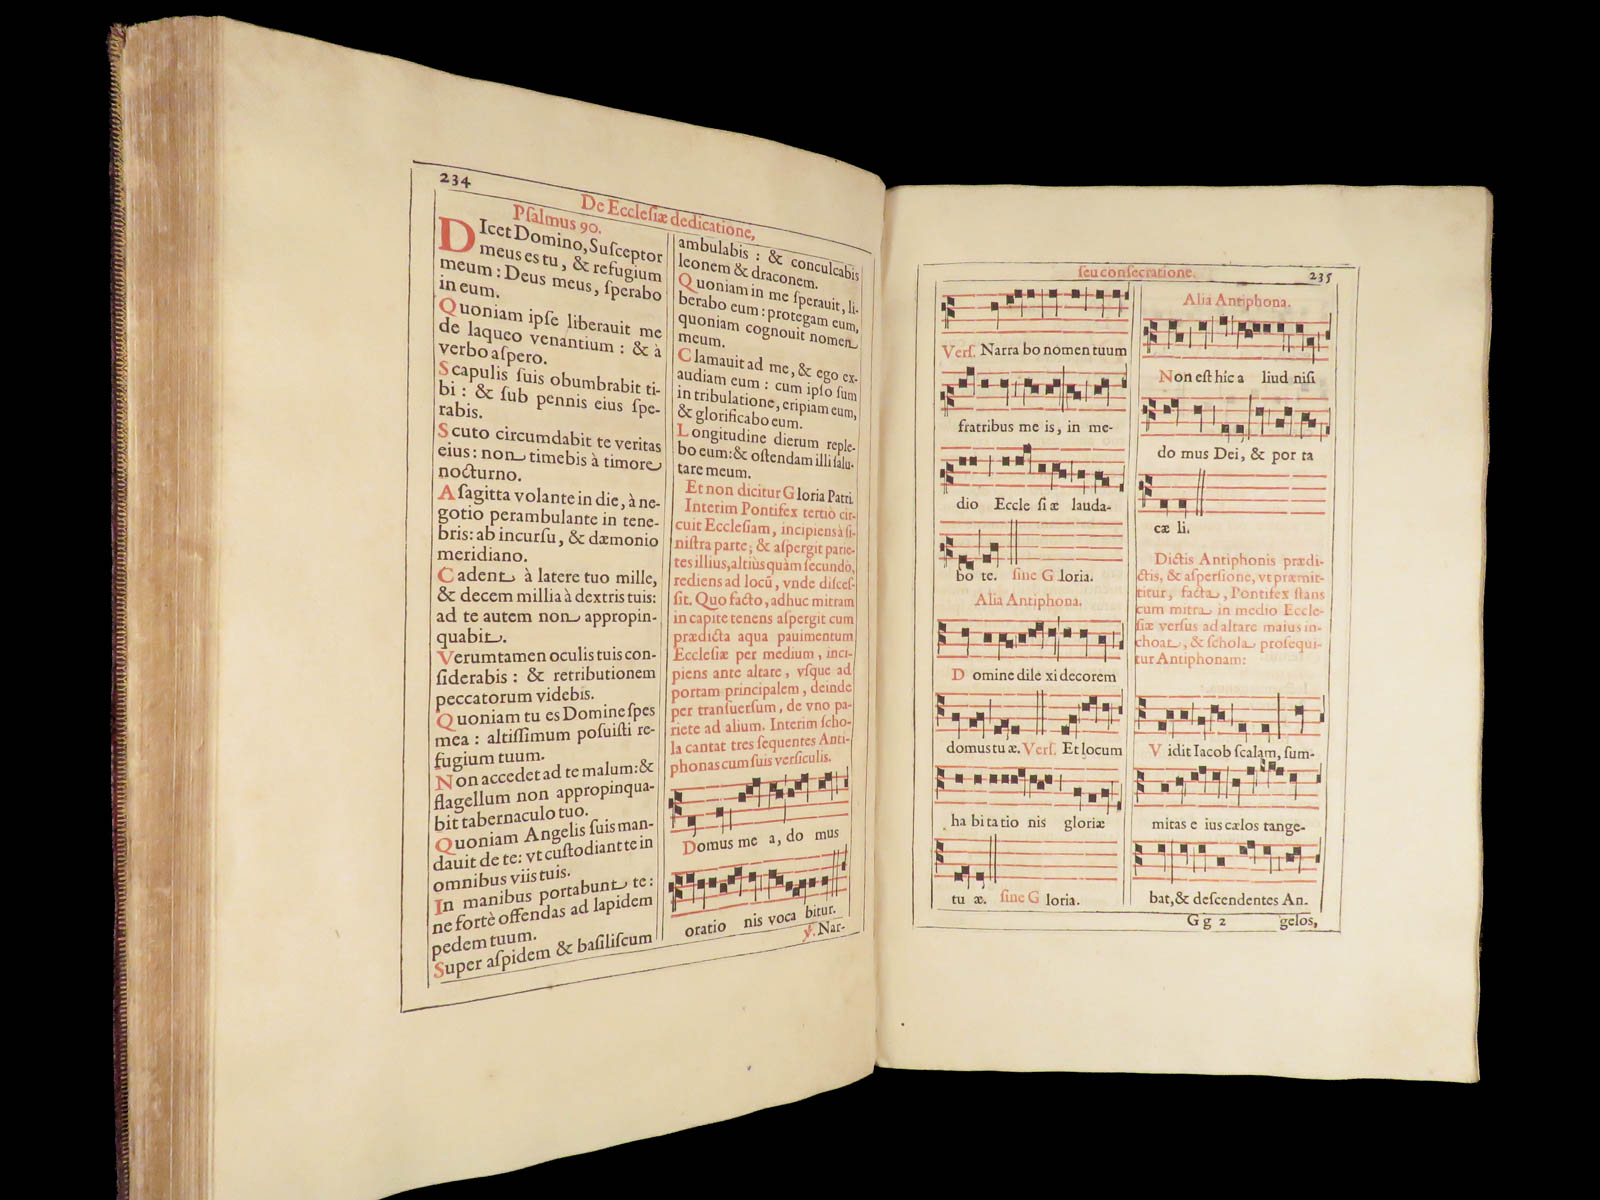 234
De Ecclesiæ dedicatione,
Pſalmus 90.
DIcet Domino, Suſceptor
meus es tu, & refugium
meum : Deus meus, ſperabo
in eum.
Quoniam ipſe liberauit me
de laqueo venantium : & à
verbo aſpero.
Scapulis ſuis obumbrabit ti-
bi : & ſub pennis eius ſpe-
rabis.
Scuto circumdabit te veritas
eius : non timebis à timore
nocturno.
A ſagitta volante in die, à ne-
gotio perambulante in tene-
bris: ab incurſu, & dæmonio
meridiano.
Cadent à latere tuo mille,
& decem millia à dextris tuis:
ad te autem non appropin-
quabit.
Verumtamen oculis tuis con-
ſiderabis : & retributionem
peccatorum videbis.
Quoniam tu es Domine ſpes
mea : altiſſimum poſuiſti re-
fugium tuum.
Non accedet ad te malum: &
flagellum non appropinqua-
bit tabernaculo tuo.
Quoniam Angelis ſuis man-
dauit de te: vt cuſtodiant te in
omnibus viis tuis.
In manibus portabunt te :
ne fortè offendas ad lapidem
pedem tuum.
Super aſpidem & baſiliſcum
ambulabis : & conculcabis
leonem & draconem.
Quoniam in me ſperauit, li-
berabo eum : protegam eum,
quoniam cognouit nomen
meum.
Clamauit ad me, & ego ex-
audiam eum : cum ipſo ſum
in tribulatione, eripiam eum,
& glorificabo eum.
Longitudine dierum reple-
bo eum: & oſtendam illi ſalu-
tare meum.
Et non dicitur Gloria Patri.
Interim Pontifex tertiò cir-
cuit Eccleſiam, incipiens à ſi-
niſtra parte; & aſpergit parie-
tes illius, altiùs quàm ſecundò,
rediens ad locũ, vnde diſceſ-
ſit. Quo facto, adhuc mitram
in capite tenens aſpergit cum
prædicta aqua pauimentum
Eccleſiæ per medium, inci-
piens ante altare, vſque ad
portam principalem, deinde
per tranſuerſum, de vno pa-
riete ad alium. Interim ſcho-
la cantat tres ſequentes Anti-
phonas cum ſuis verſiculis.
Domus me a, do mus
oratio nis voca bitur.
℣. Nar-
ſeu conſecratione.
235
Verſ. Narra bo nomen tuum
fratribus me is, in me-
dio Eccle ſi æ lauda-
bo te. ſine G loria.
Alia Antiphona.
D omine dile xi decorem
domus tu æ. Verſ. Et locum
ha bi ta tio nis gloriæ
tu æ. ſine G loria.
Alia Antiphona.
Non eſt hic a liud niſi
do mus Dei, & por ta
cæ li.
Dictis Antiphonis prædi-
ctis, & aſperſione, vt præmit-
titur, facta, Pontifex ſtans
cum mitra in medio Eccle-
ſiæ verſus ad altare maius in-
choat, & ſchola proſequi-
tur Antiphonam:
V idit Iacob ſcalam, ſum-
mitas e ius cælos tange-
bat, & deſcendentes An-
G g 2
gelos,